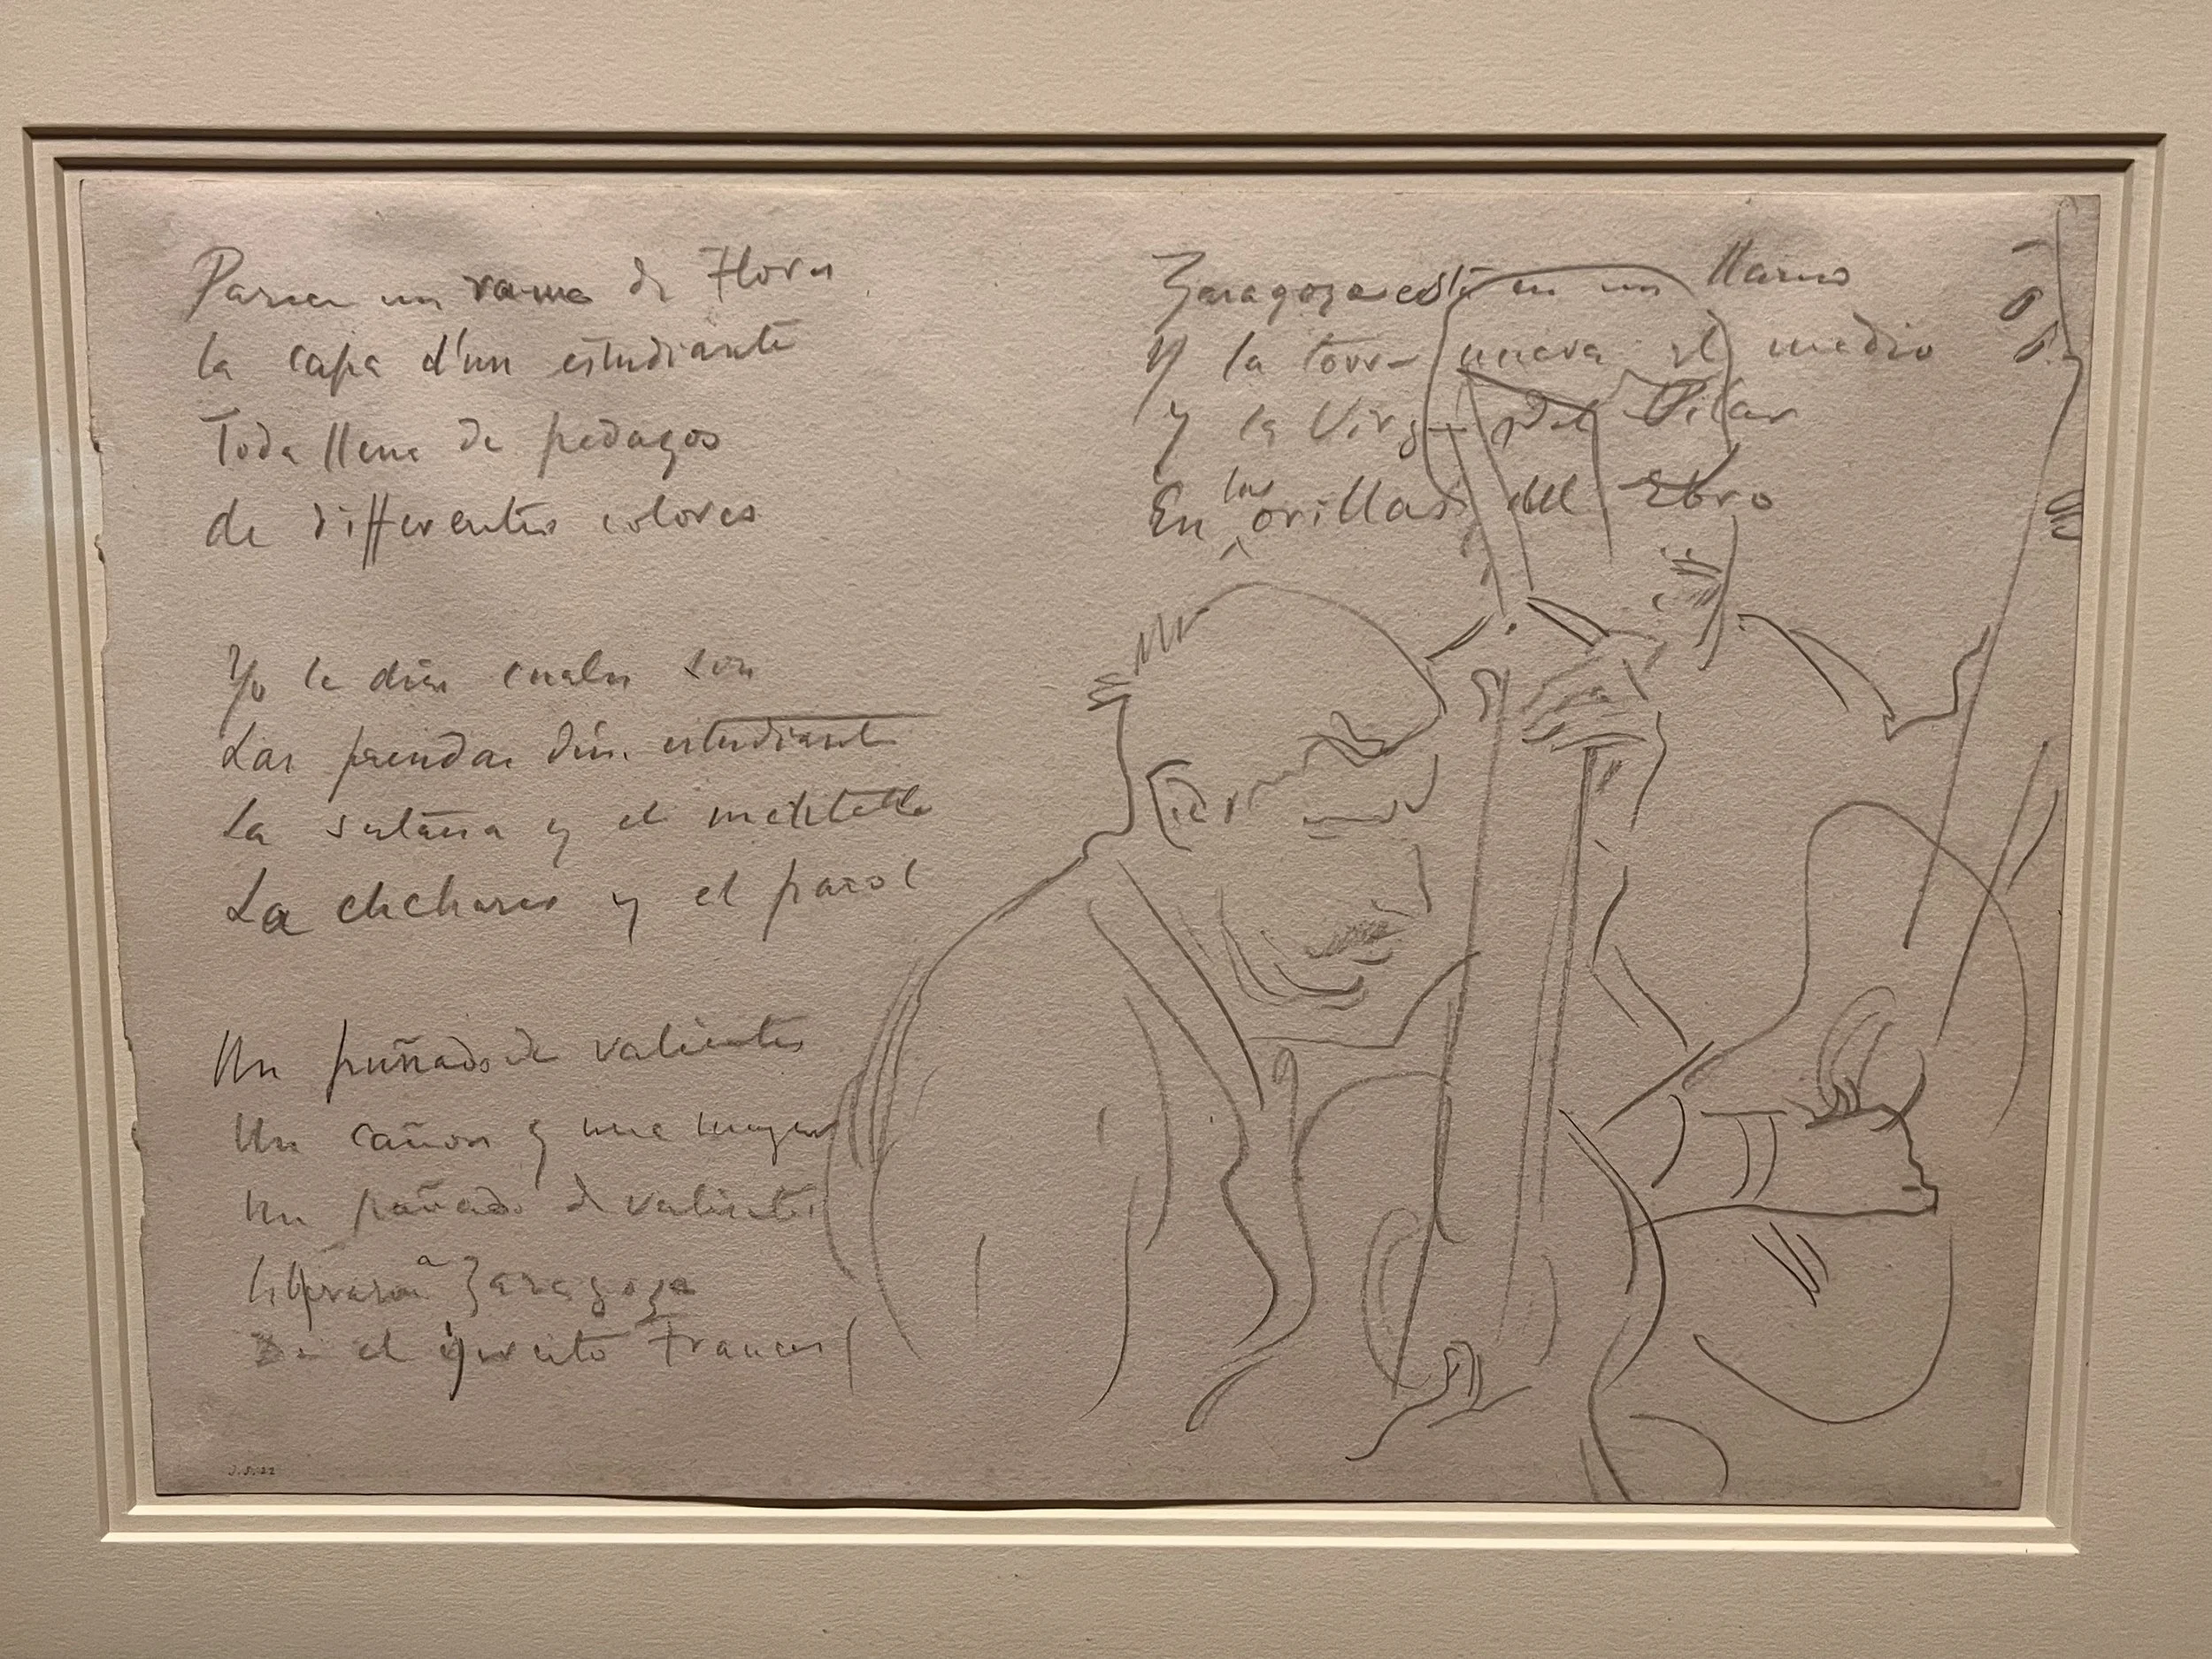 Parece un ramo de Flores
la capa d'un estudiante
Toda llena de pedazos
de differentes colores
Yo le dire cuales son
Las prendas d'un estudiante
La sutana y el
La y el
Un puñado de valientes
Un cañon y una muger
un puñado de valientes
Zaragoza
De el ejercito Frances
Zaragoza esta en un llano
Y la torre nueva el medio
y la Virgen del Pilar
En las orillas del Ebro